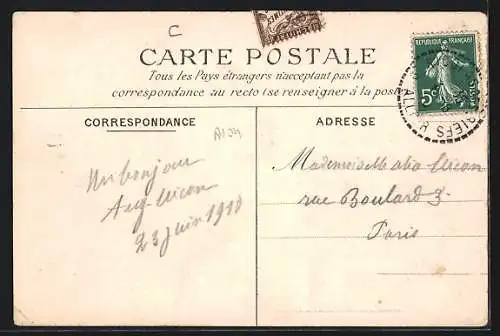 C
CARTE POSTALE
Tous les Pays étrangers n'acceptent pas la
correspondance au recto (se renseigner à la poste
CORRESPONDANCE
ADRESSE
REPUBLIQUE FRANÇAISE
5c
RIEFS
ALL
A134
Un bonjour
23 juin 1910
Mademoiselle
rue Boulard 3
Paris